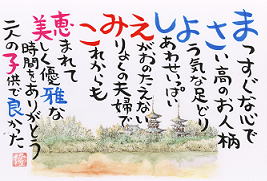 まっすぐな心で
さい高のお人柄
よう気な足どり
しあわせいっぱい
えがおのたえない
みりょくの夫婦で
これからも
恵まれて
美しく優雅な
時間をありがとう
二人の子供で良かった